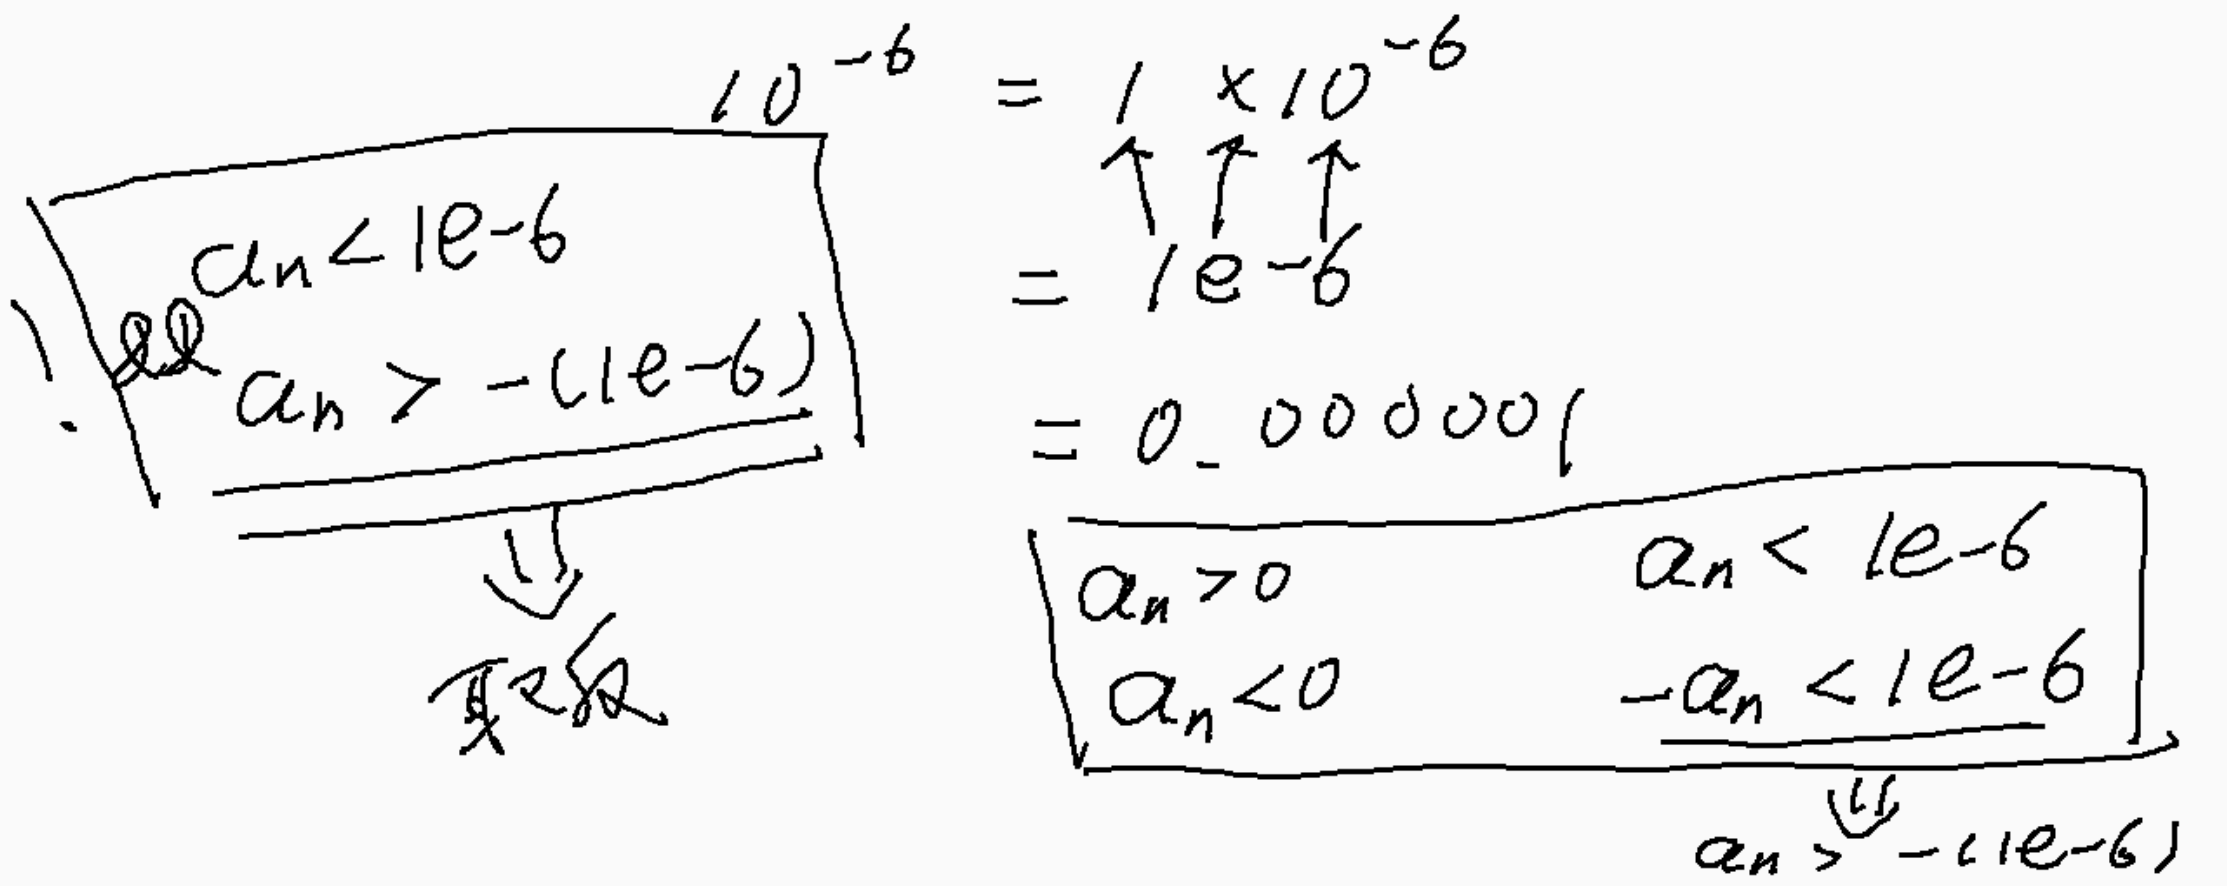 10⁻⁶ = 1 × 10⁻⁶
= 1e-6
= 0.000001
aₙ < 1e-6
และ
aₙ > -(1e-6)
aₙ > 0 aₙ < 1e-6
aₙ < 0 -aₙ < 1e-6
aₙ > -(1e-6)